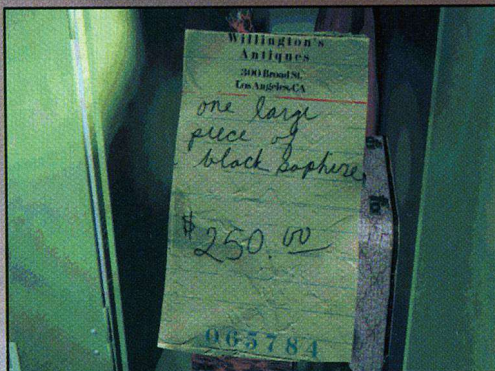 Willington's
Antiques
300 Broad St.
Los Angeles, CA
one large
piece of
black saphire
$250.00
065784